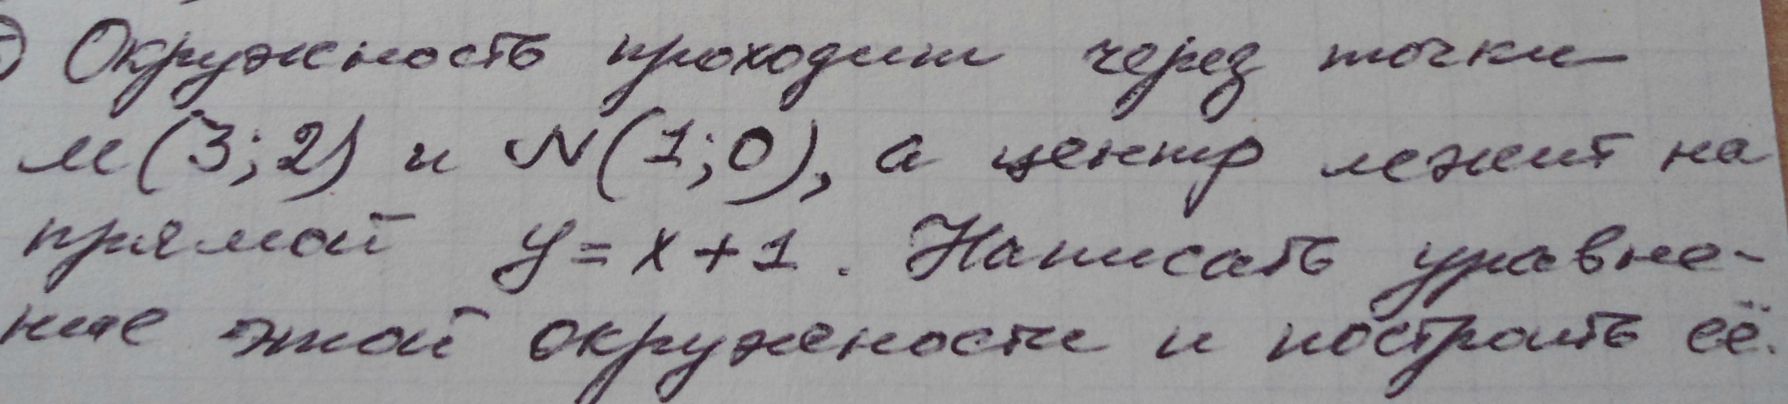 ) Окружность проходит через точки
М(3;2) и N(1;0), а центр лежит на
прямой y=x+1. Написать уравне-
ние этой окружности и построить её.